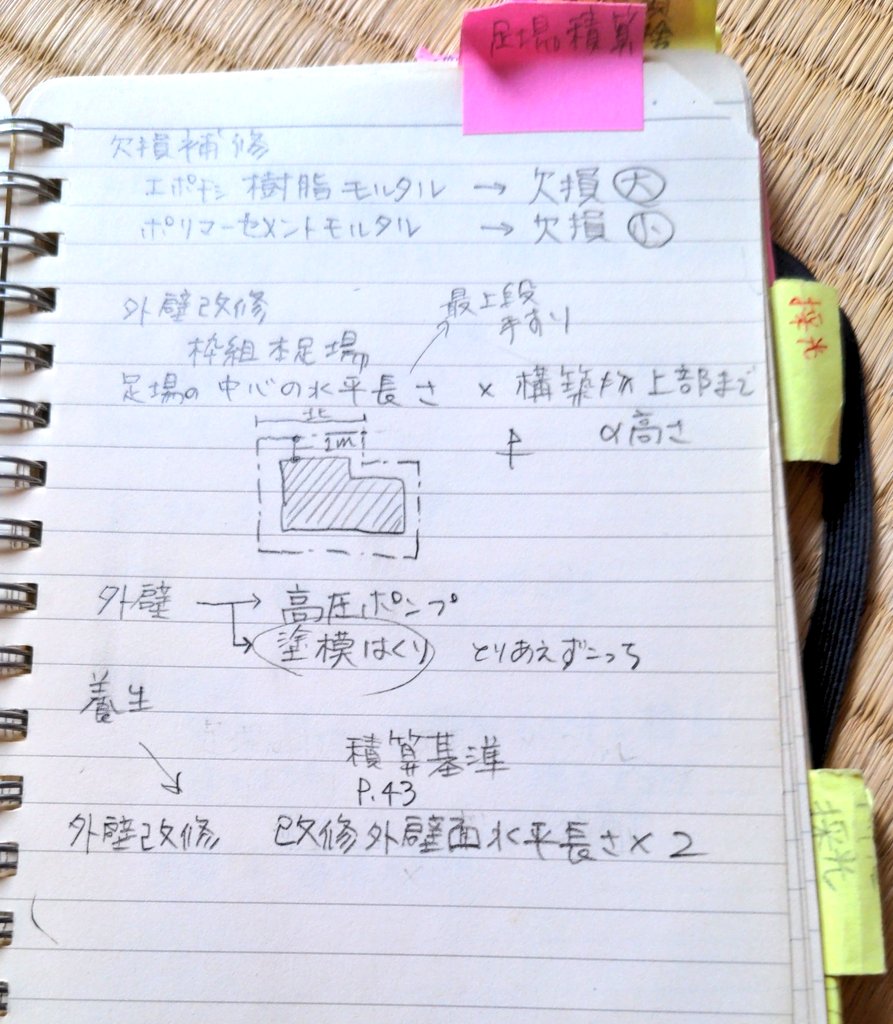 足場の積算
欠損補修
エポキシ樹脂モルタル → 欠損 大
ポリマーセメントモルタル → 欠損 小
外壁改修
最上段
手すり
枠組本足場
足場の中心の水平長さ × 構築物上部まで
高さ
1m
外壁 → 高圧ポンプ
塗模はくり とりあえずこっち
養生
積算基準
P.43
外壁改修 改修外壁面水平長さ×2
採光
採光